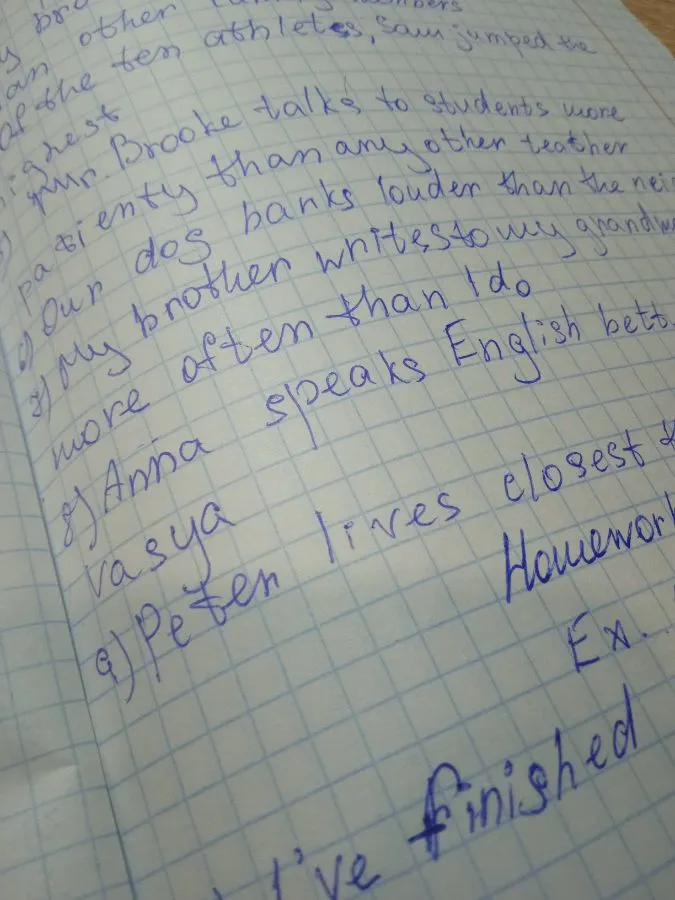 y bro
an other members
of the ten athletes, Sam jumped the
highest
mr. Brooke talks to students more
patienty than any other teather
6) Our dog banks louder than the nei
7) My brother writes to my grandm
more often than I do
8) Anna speaks English bett
vasya
9) Peter lives closest t
Homework
Ex.
I've finished